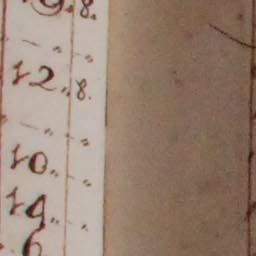 19. 8.
— „ — „
12. 8.
— „ — „
10. „ — „
14. „ — „
6